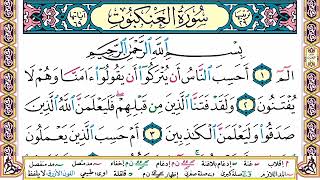 سُورَةُ العَنكَبُوتِ
بِسْمِ اللَّهِ الرَّحْمَٰنِ الرَّحِيمِ
الٓمٓ ١ أَحَسِبَ النَّاسُ أَن يُتْرَكُوٓا۟ أَن يَقُولُوٓا۟ ءَامَنَّا وَهُمْ لَا
يُفْتَنُونَ ٢ وَلَقَدْ فَتَنَّا الَّذِينَ مِن قَبْلِهِمْ فَلَيَعْلَمَنَّ اللَّهُ الَّذِينَ
صَدَقُوا۟ وَلَيَعْلَمَنَّ الْكَٰذِبِينَ ٣ أَمْ حَسِبَ الَّذِينَ يَعْمَلُونَ